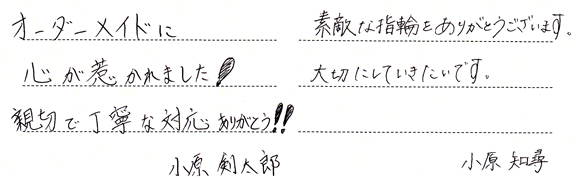 オーダーメイドに
心が惹かれました!
親切で丁寧な対応ありがとう!!
小原 剣太郎
素敵な指輪をありがとうございます。
大切にしていきたいです。
小原 知尋